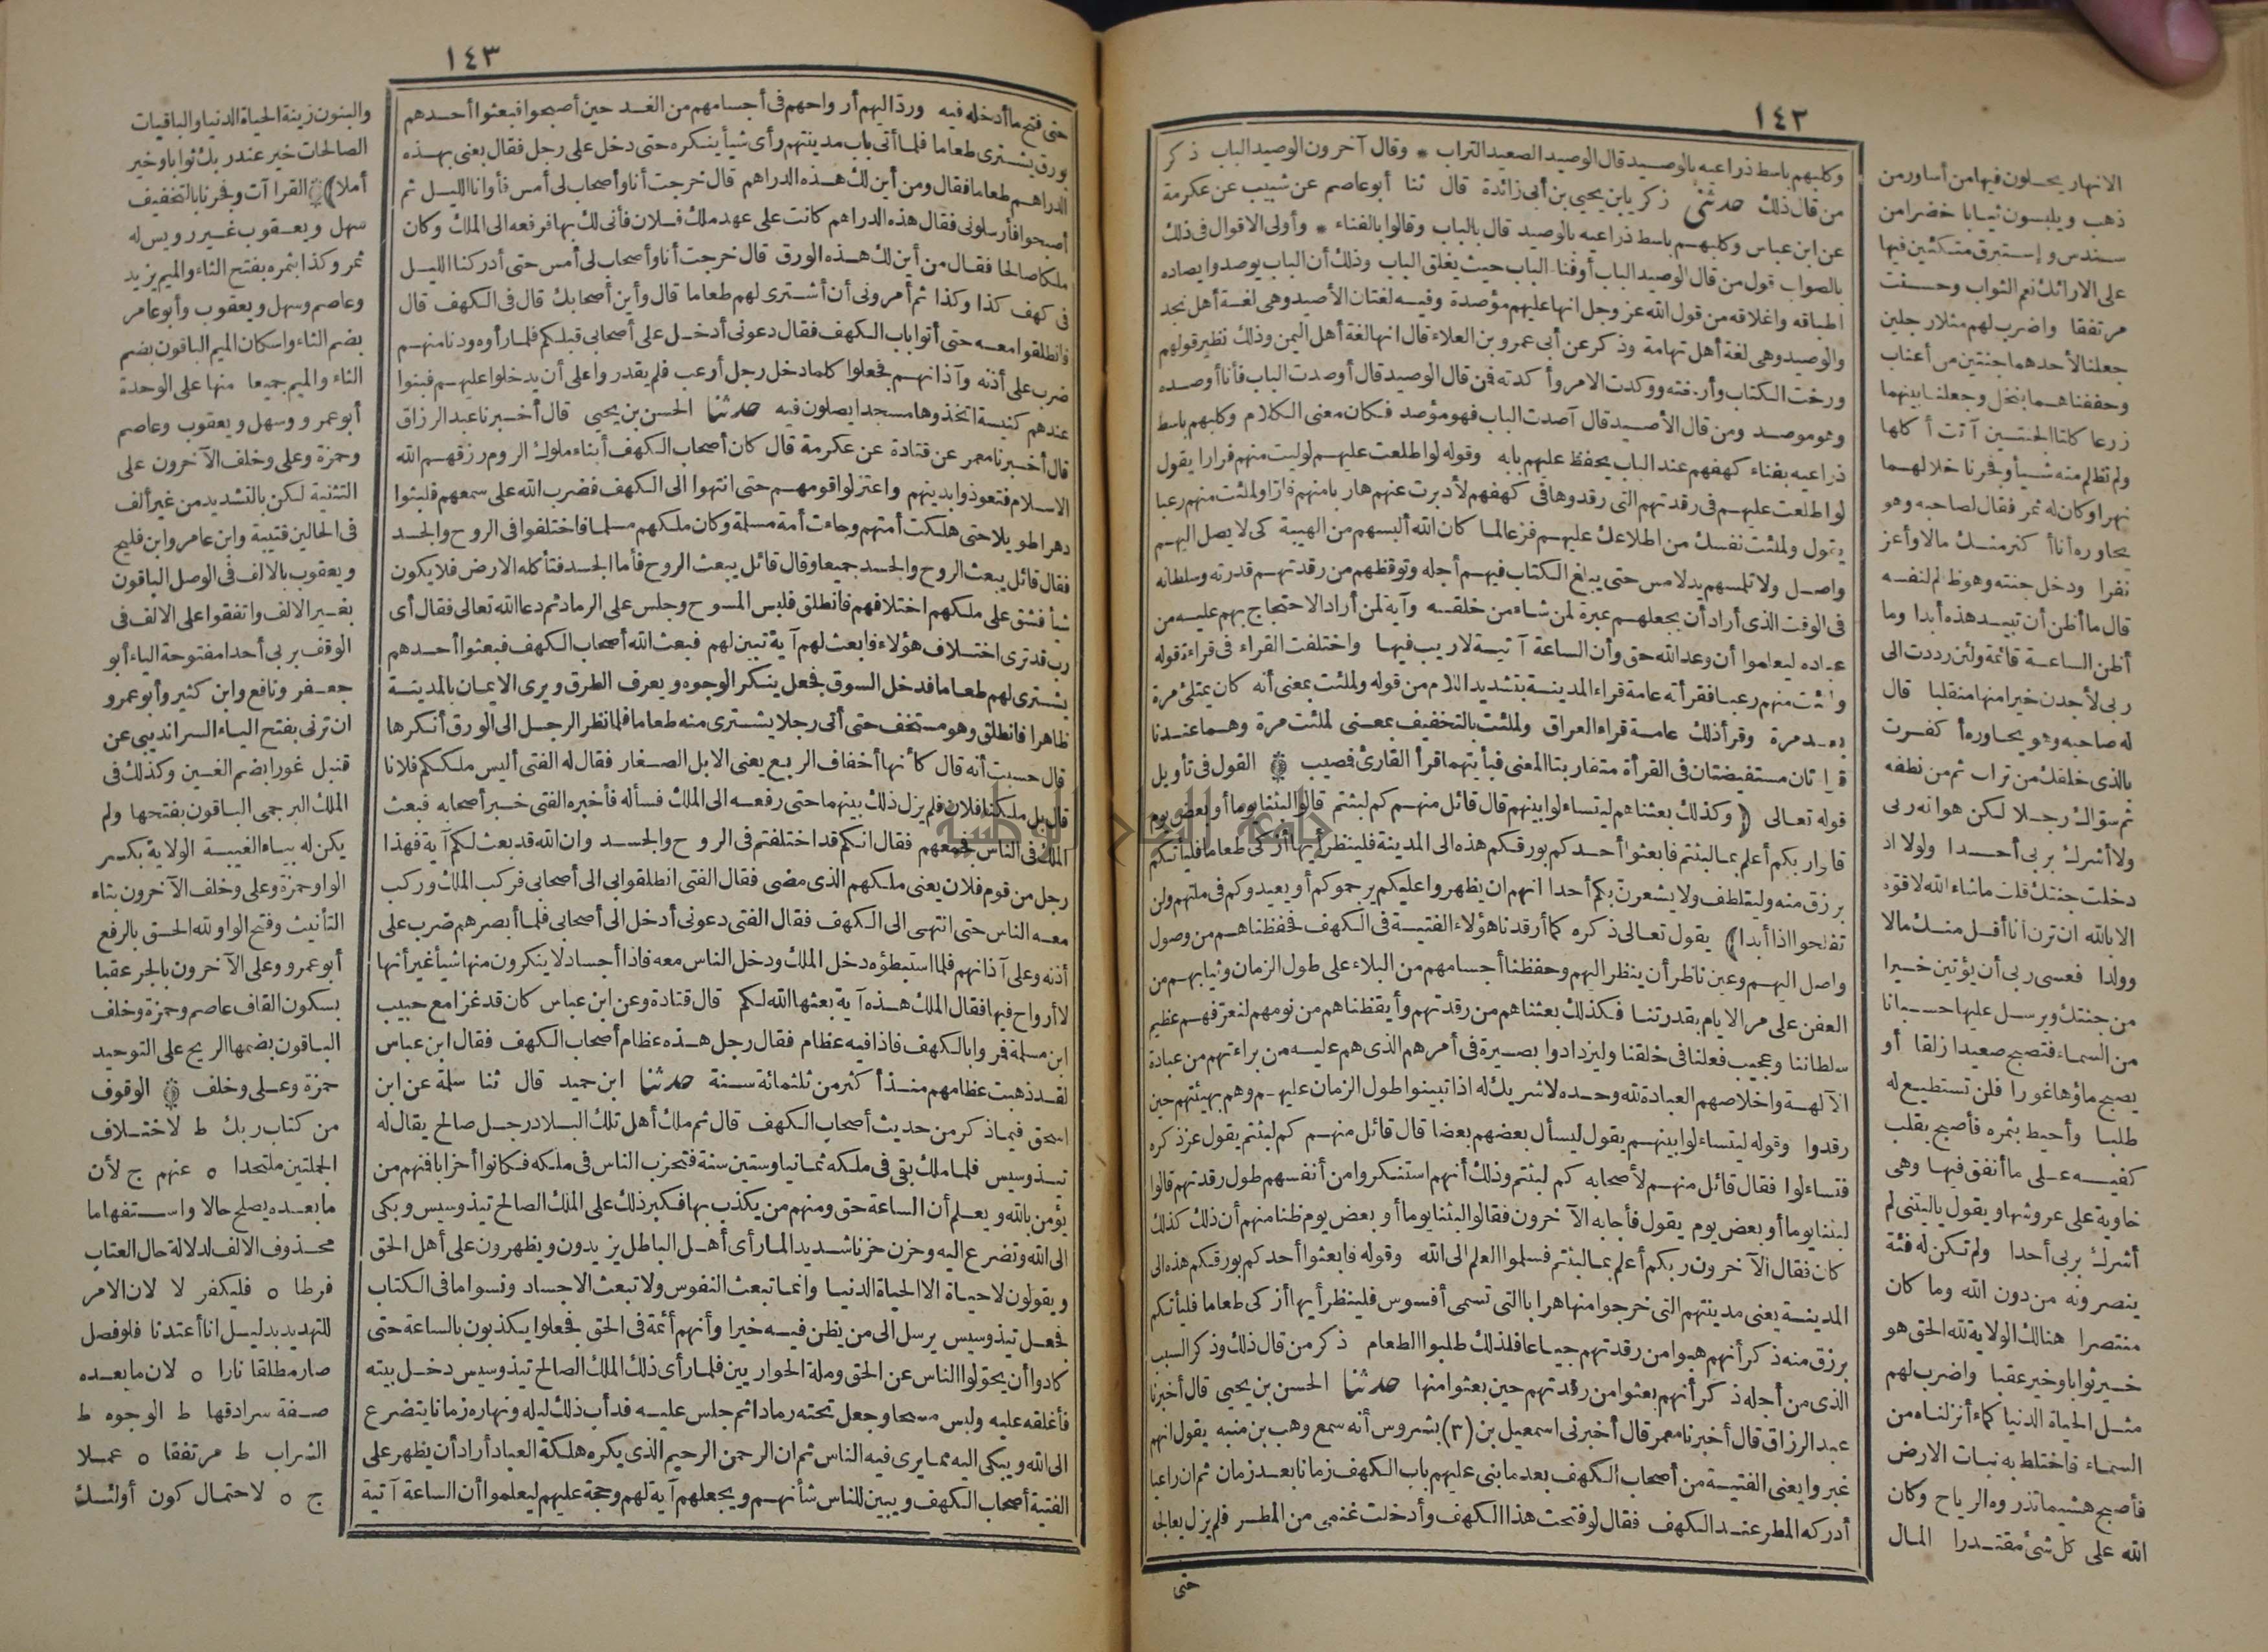 ١٤٢
وكلبهم باسط ذراعيه بالوصيد قال الوصيد الصعيد التراب * وقال آخرون الوصيد الباب ذكر
من قال ذلك حدثنى زكريا بن يحيى بن أبى زائدة قال ثنا أبو عاصم عن شبيب عن عكرمة
عن ابن عباس وكلبهم باسط ذراعيه بالوصيد قال بالباب وقالوا بالفناء * وأولى الاقوال فى ذلك
بالصواب قول من قال الوصيد الباب أو فناء الباب حيث يغلق الباب وذلك أن الباب يوصد وايصاده
اطباقه واغلاقه من قول الله عز وجل انها عليهم مؤصدة وفيه لغتان الأصيد وهى لغة أهل نجد
والوصيد وهى لغة أهل تهامة وذكر عن أبى عمرو بن العلاء قال انها لغة أهل اليمن وذلك نظير قولهم
ورخت الكتاب وأرخته ووكدت الامر وأكدته فمن قال الوصيد قال أوصدت الباب فأنا أوصده
وهو موصد ومن قال الأصيد قال آصدت الباب فهو مؤصد فكان معنى الكلام وكلبهم باسط
ذراعيه بفناء كهفهم عند الباب يحفظ عليهم بابه وقوله لو اطلعت عليهم لوليت منهم فرارا يقول
لو اطلعت عليهم فى رقدتهم التى رقدوها فى كهفهم لأدبرت عنهم هاربا منهم فارا ولملئت منهم رعبا
يقول ولملئت نفسك من اطلاعك عليهم فزعا لما كان الله ألبسهم من الهيبة كى لا يصل اليهم
واصل ولا تلمسهم يد لامس حتى يبلغ الكتاب فيهم أجله وتوقظهم من رقدتهم قدرته وسلطانه
فى الوقت الذى أراد أن يجعلهم عبرة لمن شاء من خلقه وآية لمن أراد الاحتجاج بهم عليه من
عباده ليعلموا أن وعد الله حق وأن الساعة آتية لا ريب فيها واختلفت القراء فى قراءة قوله
ولملئت منهم رعبا فقرأته عامة قراء المدينة بتشديد اللام من قوله ولملئت بمعنى أنه كان يمتلئ مرة
بعد مرة وقرأ ذلك عامة قراء العراق ولملئت بالتخفيف بمعنى لملئت مرة وهما عندنا
قراءتان مستفيضتان فى القرأة متقاربتا المعنى فبأيتهما قرأ القارئ فمصيب القول فى تأويل
قوله تعالى (وكذلك بعثناهم ليتساءلوا بينهم قال قائل منهم كم لبثتم قالوا لبثنا يوما أو بعض يوم
قالوا ربكم أعلم بما لبثتم فابعثوا أحدكم بورقكم هذه الى المدينة فلينظر أيها أزكى طعاما فليأتكم
برزق منه وليتلطف ولا يشعرن بكم أحدا انهم ان يظهروا عليكم يرجموكم أو يعيدوكم فى ملتهم ولن
تفلحوا اذا أبدا) يقول تعالى ذكره كما أرقدنا هؤلاء الفتية فى الكهف فحفظناهم من وصول
واصل اليهم وعين ناظر أن ينظر اليهم وحفظنا أجسامهم من البلاء على طول الزمان وثيابهم من
العفن على مر الايام بقدرتنا فكذلك بعثناهم من رقدتهم وأيقظناهم من نومهم لنعرفهم عظيم
سلطاننا وعجيب فعلنا فى خلقنا وليزدادوا بصيرة فى أمرهم الذى هم عليه من براءتهم من عبادة
الآلهة واخلاصهم العبادة لله وحده لا شريك له اذا تبينوا طول الزمان عليهم وهم بهيئتهم حين
رقدوا وقوله ليتساءلوا بينهم يقول ليسأل بعضهم بعضا قال قائل منهم كم لبثتم يقول عز ذكره
فتساءلوا فقال قائل منهم لأصحابه كم لبثتم وذلك أنهم استنكروا من أنفسهم طول رقدتهم قالوا
لبثنا يوما أو بعض يوم يقول فأجابه الآخرون فقالوا لبثنا يوما أو بعض يوم ظنا منهم أن ذلك كذلك
كان فقال الآخرون ربكم أعلم بما لبثتم فسلموا العلم الى الله وقوله فابعثوا أحدكم بورقكم هذه الى
المدينة يعنى مدينتهم التى خرجوا منها هرابا التى تسمى أفسوس فلينظر أيها أزكى طعاما فليأتكم
برزق منه ذكر أنهم هبوا من رقدتهم جياعا فلذلك طلبوا الطعام ذكر من قال ذلك وذكر السبب
الذى من أجله ذكر أنهم بعثوا من رقدتهم حين بعثوا منها حدثنا الحسن بن يحيى قال أخبرنا
عبد الرزاق قال أخبرنا معمر قال أخبرنى اسمعيل بن (٣) بشروس أنه سمع وهب بن منبه يقول انهم
غبروا يعنى الفتية من أصحاب الكهف بعد ما بنى عليهم باب الكهف زمانا بعد زمان ثم ان راعيا
أدركه المطر عند الكهف فقال لو فتحت هذا الكهف وأدخلت غنمى من المطر فلم يزل يعالجه
حتى
الانهار يحلون فيها من أساور من
ذهب ويلبسون ثيابا خضرا من
سندس وإستبرق متكئين فيها
على الارائك نعم الثواب وحسنت
مرتفقا واضرب لهم مثلا رجلين
جعلنا لأحدهما جنتين من أعناب
وحففناهما بنخل وجعلنا بينهما
زرعا كلتا الجنتين آتت أكلها
ولم تظلم منه شيأ وفجرنا خلالهما
نهرا وكان له ثمر فقال لصاحبه وهو
يحاوره أنا أكثر منك مالا وأعز
نفرا ودخل جنته وهو ظالم لنفسه
قال ما أظن أن تبيد هذه أبدا وما
أظن الساعة قائمة ولئن رددت الى
ربى لأجدن خيرا منها منقلبا قال
له صاحبه وهو يحاوره أكفرت
بالذى خلقك من تراب ثم من نطفه
ثم سواك رجلا لكن هو الله ربى
ولا أشرك بربى أحدا ولولا اذ
دخلت جنتك قلت ما شاء الله لا قوة
الا بالله ان ترن أنا أقل منك مالا
وولدا فعسى ربى أن يؤتين خيرا
من جنتك ويرسل عليها حسبانا
من السماء فتصبح صعيدا زلقا أو
يصبح ماؤها غورا فلن تستطيع له
طلبا وأحيط بثمره فأصبح يقلب
كفيه على ما أنفق فيها وهى
خاوية على عروشها ويقول ياليتنى لم
أشرك بربى أحدا ولم تكن له فئة
ينصرونه من دون الله وما كان
منتصرا هنالك الولاية لله الحق هو
خير ثوابا وخير عقبا واضرب لهم
مثل الحياة الدنيا كماء أنزلناه من
السماء فاختلط به نبات الارض
فأصبح هشيما تذروه الرياح وكان
الله على كل شئ مقتدرا المال
١٤٣
حتى فتح ما أدخله فيه ورد اليهم أرواحهم فى أجسامهم من الغد حين أصبحوا فبعثوا أحدهم
بورق يشترى طعاما فلما أتى باب مدينتهم رأى شيأ ينكره حتى دخل على رجل فقال بعنى بهذه
الدراهم طعاما فقال ومن أين لك هذه الدراهم قال خرجت أنا وأصحاب لى أمس فأوانا الليل ثم
أصبحوا فأرسلونى فقال هذه الدراهم كانت على عهد ملك فلان فأنى لك بها فرفعه الى الملك وكان
ملكا صالحا فقال من أين لك هذه الورق قال خرجت أنا وأصحاب لى أمس حتى أدركنا الليل
فى كهف كذا وكذا ثم أمرونى أن أشترى لهم طعاما قال وأين أصحابك قال فى الكهف قال
فانطلقوا معه حتى أتوا باب الكهف فقال دعونى أدخل على أصحابى قبلكم فلما رأوه ودنا منهم
ضرب على أذنه وآذانهم فجعلوا كلما دخل رجل أرعب فلم يقدروا على أن يدخلوا عليهم فبنوا
عندهم كنيسة اتخذوها مسجدا يصلون فيه حدثنا الحسن بن يحيى قال أخبرنا عبد الرزاق
قال أخبرنا معمر عن قتادة عن عكرمة قال كان أصحاب الكهف أبناء ملوك الروم رزقهم الله
الاسلام فتعوذوا بدينهم واعتزلوا قومهم حتى انتهوا الى الكهف فضرب الله على سمعهم فلبثوا
دهرا طويلا حتى هلكت أمتهم وجاءت أمة مسلمة وكان ملكهم مسلما فاختلفوا فى الروح والجسد
فقال قائل يبعث الروح والجسد جميعا وقال قائل يبعث الروح فأما الجسد فتأكله الارض فلا يكون
شيأ فشق على ملكهم اختلافهم فانطلق فلبس المسوح وجلس على الرماد ثم دعا الله تعالى فقال أى
رب قد ترى اختلاف هؤلاء فابعث لهم آية تبين لهم فبعث الله أصحاب الكهف فبعثوا أحدهم
يشترى لهم طعاما فدخل السوق فجعل ينكر الوجوه ويعرف الطرق ويرى الايمان بالمدينة
ظاهرا فانطلق وهو مستخف حتى أتى رجلا يشترى منه طعاما فلما نظر الرجل الى الورق أنكرها
قال حسبت أنه قال كأنها أخفاف الربيع يعنى الابل الصغار فقال له الفتى أليس ملككم فلانا
قال بل ملكنا فلان فلم يزل ذلك بينهما حتى رفعه الى الملك فسأله فأخبره الفتى خبر أصحابه فبعث
الملك فى الناس فجمعهم فقال انكم قد اختلفتم فى الروح والجسد وان الله قد بعث لكم آية فهذا
رجل من قوم فلان يعنى ملكهم الذى مضى فقال الفتى انطلقوا بى الى أصحابى فركب الملك وركب
معه الناس حتى انتهى الى الكهف فقال الفتى دعونى أدخل الى أصحابى فلما أبصرهم ضرب على
أذنه وعلى آذانهم فلما استبطؤه دخل الملك ودخل الناس معه فاذا أجساد لا ينكرون منها شيأ غير أنها
لا أرواح فيها فقال الملك هذه آية بعثها الله لكم قال قتادة وعن ابن عباس كان قد غزا مع حبيب
ابن مسلمة فمروا بالكهف فاذا فيه عظام فقال رجل هذه عظام أصحاب الكهف فقال ابن عباس
لقد ذهبت عظامهم منذ أكثر من ثلثمائة سنة حدثنا ابن حميد قال ثنا سلمة عن ابن
اسحق فيما ذكر من حديث أصحاب الكهف قال ثم ملك أهل تلك البلاد رجل صالح يقال له
تيذوسيس فلما ملك بقى فى ملكه ثمانيا وستين سنة فتحزب الناس فى ملكه فكانوا أحزابا فمنهم من
يؤمن بالله ويعلم أن الساعة حق ومنهم من يكذب بها فكبر ذلك على الملك الصالح تيذوسيس وبكى
الى الله وتضرع اليه وحزن حزنا شديدا لما رأى أهل الباطل يزيدون ويظهرون على أهل الحق
ويقولون لا حياة الا الحياة الدنيا وانما تبعث النفوس ولا تبعث الاجساد ونسوا ما فى الكتاب
فجعل تيذوسيس يرسل الى من يظن فيه خيرا وأنهم أئمة فى الحق فجعلوا يكذبون بالساعة حتى
كادوا أن يحولوا الناس عن الحق وملة الحواريين فلما رأى ذلك الملك الصالح تيذوسيس دخل بيته
فأغلقه عليه ولبس مسحا وجعل تحته رمادا ثم جلس عليه فدأب ذلك ليله ونهاره زمانا يتضرع
الى الله ويبكى اليه مما يرى فيه الناس ثم ان الرحمن الرحيم الذى يكره هلكة العباد أراد أن يظهر على
الفتية أصحاب الكهف ويبين للناس شأنهم ويجعلهم آية لهم وحجة عليهم ليعلموا أن الساعة آتية
والبنون زينة الحياة الدنيا والباقيات
الصالحات خير عند ربك ثوابا وخير
أملا) القراآت وفجرنا بالتخفيف
سهل ويعقوب غير رويس له
ثمر وكذا بثمره بفتح الثاء والميم يزيد
وعاصم وسهل ويعقوب وأبو عامر
بضم الثاء واسكان الميم الباقون بضم
الثاء والميم جميعا منها على الوحدة
أبو عمرو وسهل ويعقوب وعاصم
وحمزة وعلى وخلف الآخرون على
التثنية لكن بالتشديد من غير ألف
فى الحالين قتيبة وابن عامر وابن فليح
ويعقوب بالالف فى الوصل الباقون
بغير الالف واتفقوا على الالف فى
الوقف بربى أحدا مفتوحة الياء أبو
جعفر ونافع وابن كثير وأبو عمرو
ان ترنى بفتح الياء السرانديبى عن
قنبل غورا بضم الغين وكذلك فى
الملك البرجمى الباقون بفتحها ولم
يكن له بياء الغيبة الولاية بكسر
الواو حمزة وعلى وخلف الآخرون بتاء
التأنيث وفتح الواو لله الحق بالرفع
أبو عمرو وعلى الآخرون بالجر عقبا
بسكون القاف عاصم وحمزة وخلف
الباقون بضمها الريح على التوحيد
حمزة وعلى وخلف الوقوف
من كتاب ربك ط لاختلاف
الجملتين ملتحدا ه عنهم ج لأن
ما بعده يصلح حالا واستفهاما
محذوف الالف لدلالة حال العتاب
فرطا ه فليكفر لا لان الامر
للتهديد بدليل انا أعتدنا فلو فصل
صار مطلقا نارا ه لان ما بعده
صفة سرادقها ط الوجوه ط
الشراب ط مرتفقا ه عملا
ج ه لاحتمال كون أولئك